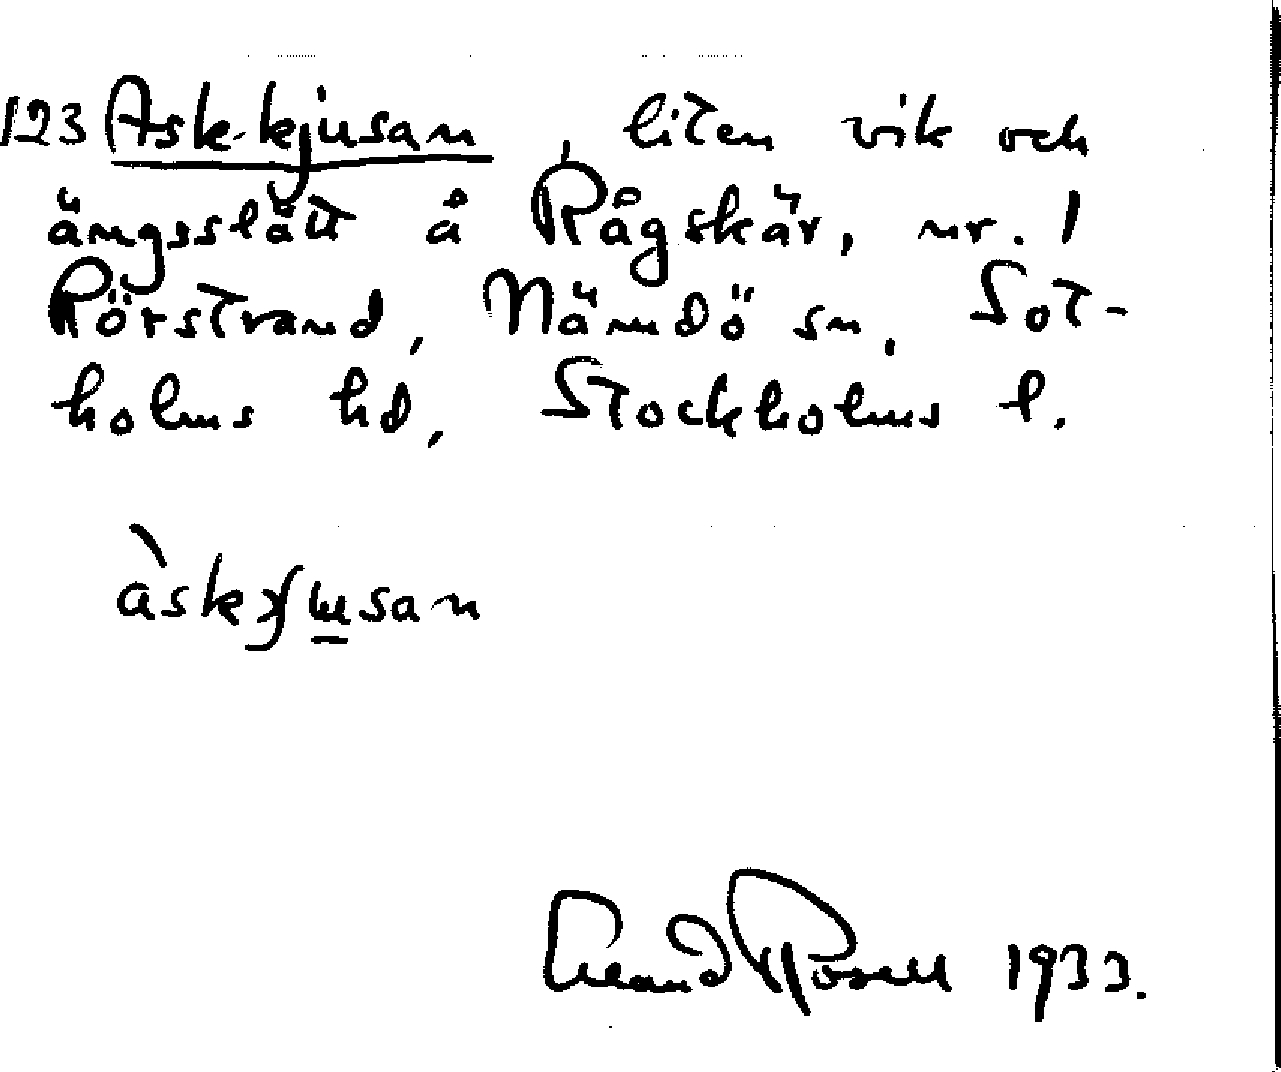 123 Ask-kjusan, liten vik och
ängsslätt å Rågskär, nr. 1
Rörstrand, Nämdö sn, Sot-
holms hd, Stockholms l.
Erland Rosell 1933.